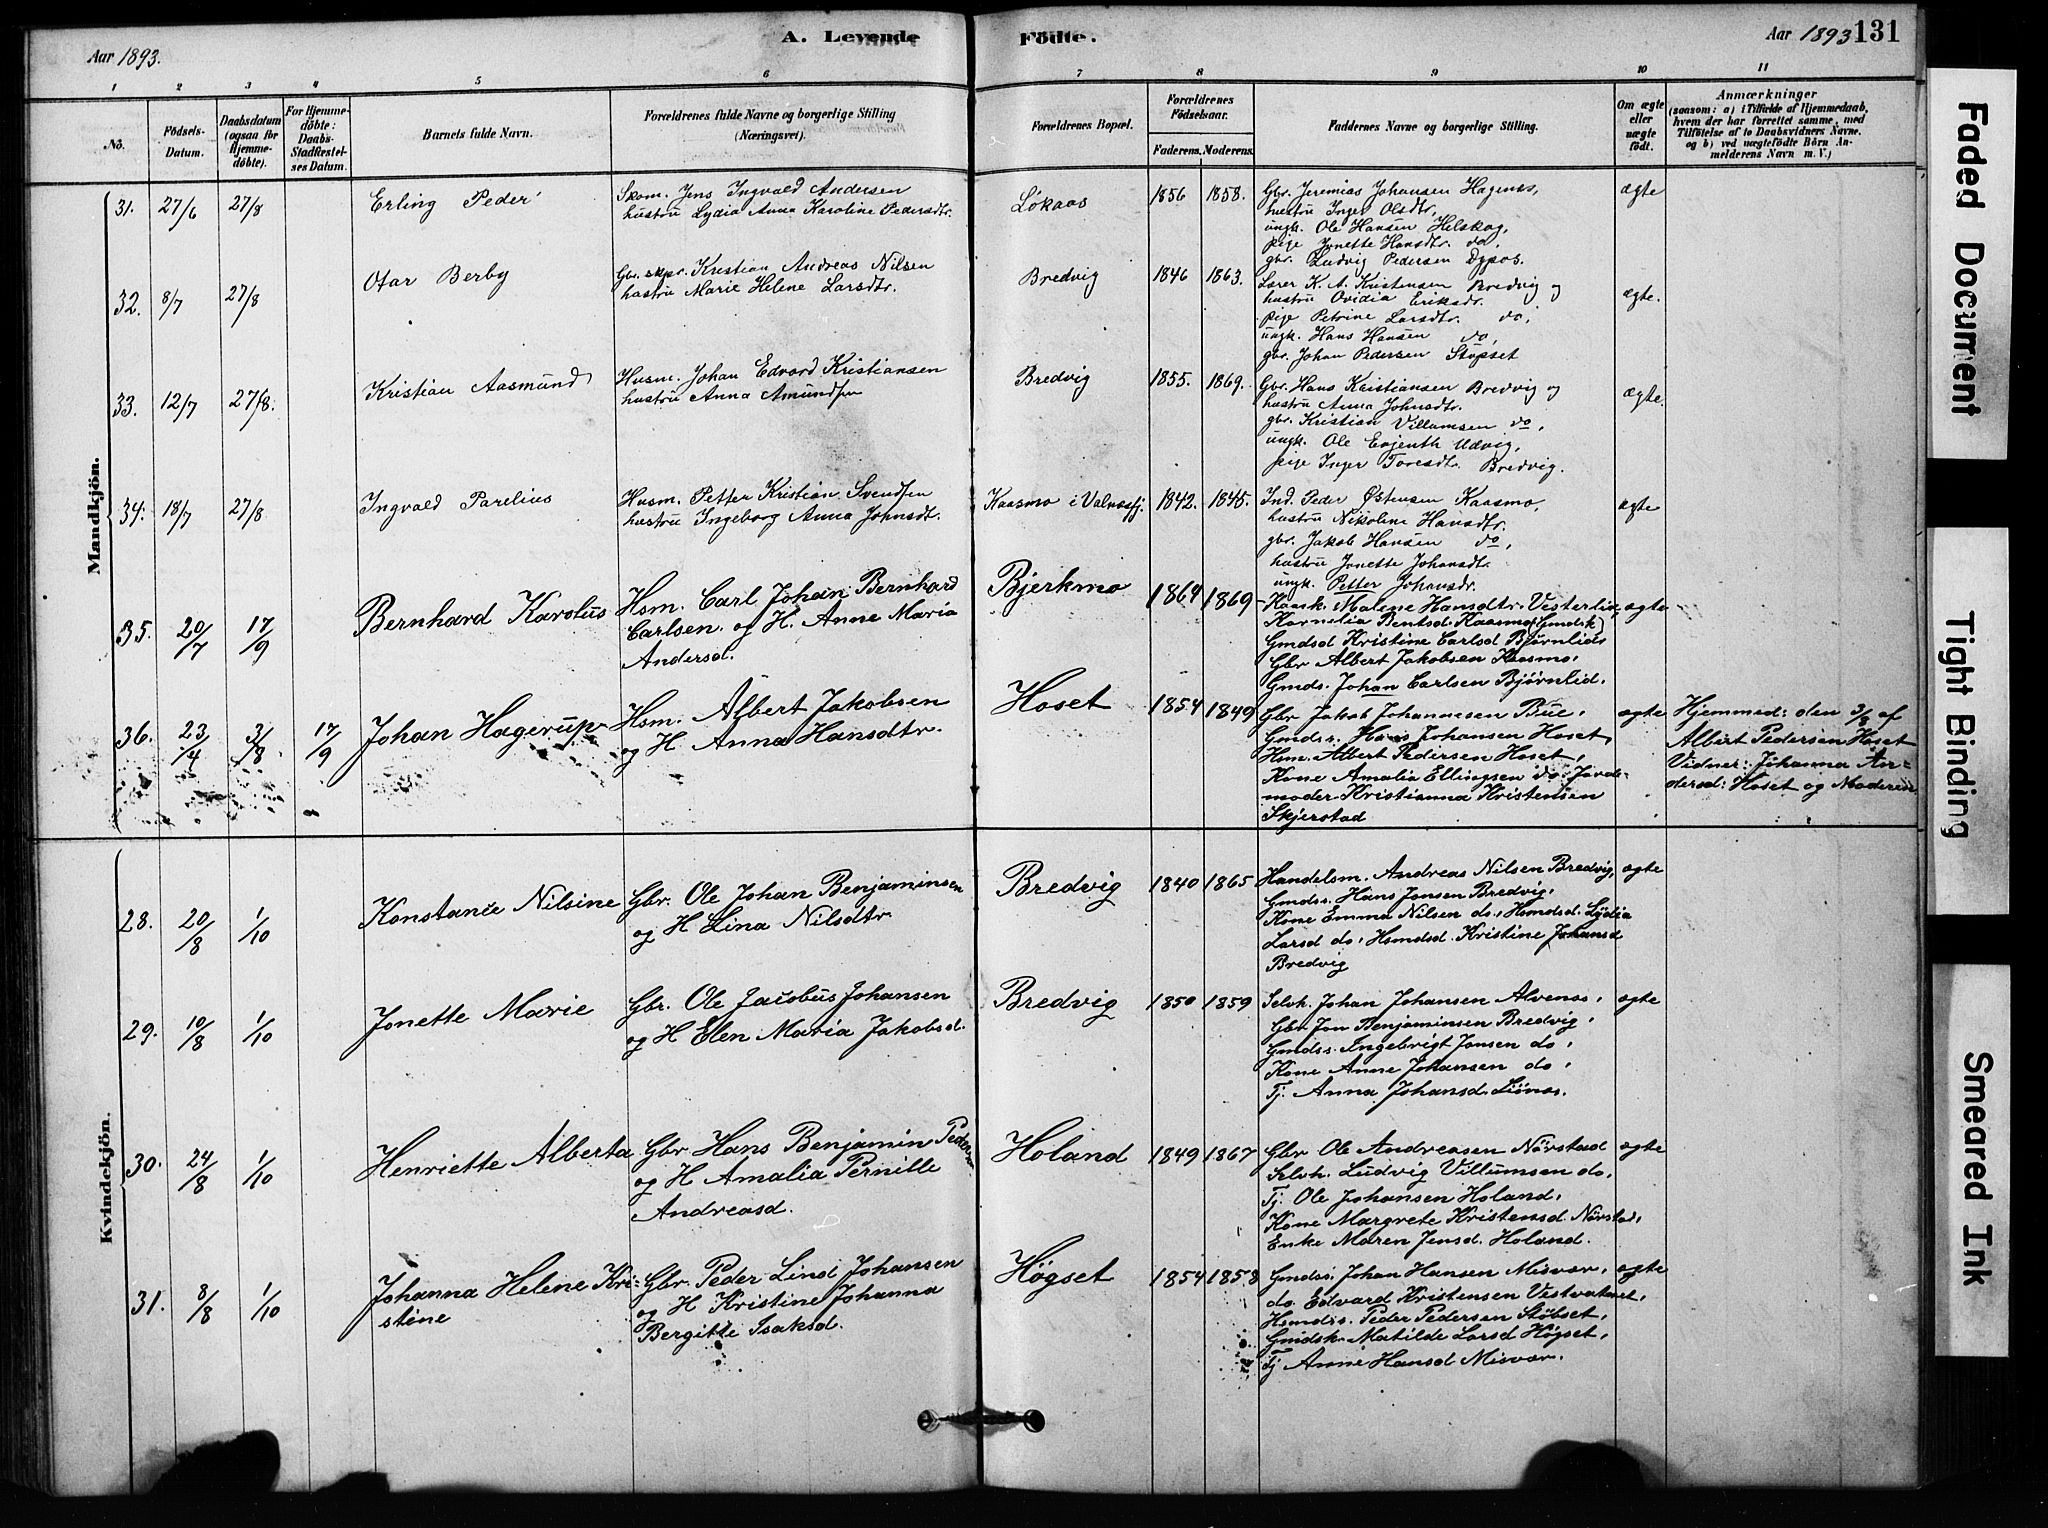 Aar 1893.
A. Levende
Födte.
Aar 1893
131
1 2 3 4 5 6 7 8 9 10 11
No.
Födsels-Datum.
Daabsdatum (ogsaa for Hjemme-döbte).
For Hjemme-döbte: Daabs-Stadfæstelses Datum.
Barnets fulde Navn.
Forældrenes fulde Navne og borgerlige Stilling (Næringsvei).
Forældrenes Bopæl.
Forældrenes Födselsaar.
Faderens. Moderens.
Faddernes Navne og borgerlige Stilling.
Om ægte eller uægte födt.
Anmærkninger
(saasom: a) i Tilfælde af Hjemmedaab, hvem der har forrettet samme, med Tilföielse af to Daabsvidners Navne, og b) ved uægtefödte Börn Anmelderens Navn m. V.)
Mandkjön.
31. 27/6 27/8 Erling Peder
Skom. Jens Ingvald Andersen
hustru Lydia Anna Karoline Pedersdtr.
Løkaas 1856 1858.
Gbr. Jeremias Johansen Hagenæs,
hustru Inger Olsdtr,
ungk. Ole Hansen Helskog,
pige Jonette Hansdtr. do,
gbr. Ludvig Pedersen Dypos.
ægte
32. 8/7 27/8 Otar Berby
Gbr. skpr. Kristian Andreas Nilsen
hustru Marie Helene Larsdtr.
Bredvig 1846 1863.
Lærer K. A. Kristensen Bredvig og
hustru Ovidia Eriksdr.
pige Petrine Larsdtr. do,
ungk. Hans Hansen do,
gbr. Johan Pedersen Støpset
ægte.
33. 12/7 27/8. Kristian Aasmund
Husm. Johan Edvard Kristiansen
hustru Anna Amundsen
Bredvig 1855. 1869.
Gbr. Hans Kristiansen Bredvig og
hustru Anna Johnsdtr.
gbr. Kristian Villumsen do,
ungk. Ole Evjenth Udvig,
pige Inger Toresdtr. Bredvig.
ægte.
34. 18/7 27/8 Ingvald Parelius
Husm. Petter Kristian Svendsen
hustru Ingeborg Anna Johnsdt.
Kaasmo i Valnesfj. 1842. 1845.
Ind. Peder Østensen Kaasmo,
hustru Nikoline Hansdtr.
gbr. Jakob Hansen do,
hustru Jonette Johansdt.
ungk. Petter Johansdr.
ægte
35. 20/7 17/9 Bernhard Karolus
Hsm. Carl Johan Bernhard
Carlsen. og H. Anne Maria
Andersd.
Bjerkmo 1864 1869
Kaarsk. Malene Hansdtr. Vesterlid,
Kornelia Bentsd. Kaasmo (Gmdsk)
Gmdsd Kristine Carlsd Bjørnlid
Gbr Albert Jakobsen Kaasmo,
Gmds. Johan Carlsen Bjørnlid.
ægte
36. 23/4 3/8 17/9 Johan Hagerup
Hsm. Albert Jakobsen
og H Anna Hansdtr.
Hoset 1854 1849
Gbr Jakob Johannesen Bue,
Gmdss. Hans Johansen Hoset,
Hsm. Albert Pedersen Hoset,
Kone Amalia Ellingsen do. Jorde-
moder Kristianna Kristensen
Skjerstad
ægte
Hjemmed: den 3/8 af
Albert Pedersen Hoset
Vidner: Johanna An-
dersd: Hoset og Moderen
Kvindekjön.
28. 20/8 1/10 Konstance Nilsine
Gbr. Ole Johan Benjaminsen
og H Lina Nilsdtr.
Bredvig 1840 1865
Handelsm. Andreas Nilsen Bredvig,
Gmdss. Hans Jonsen Bredvig,
Kone Emma Nilsen do, Hsmdsd. Lydia
Larsd do, Hsmdsd. Kristine Johansd
Bredvig
ægte
29. 10/8 1/10 Jonette Marie
Gbr. Ole Jacobus Johansen
og H Elen Maria Jakobsd.
Bredvig 1850 1859
Selvh. Johan Johansen Alvenes,
Gbr Jon Benjaminsen Bredvig,
Gmdss. Ingebrigt Jonsen do,
Kone Anne Johansen do,
Tj. Anna Johansd. Liønes.
ægte
30. 24/8 1/10 Henriette Alberta
Gbr Hans Benjamin Pedersen
og H Amalia Pernille
Andreasd.
Holand 1849 1867
Gbr Ole Andreasen Nörstad
Selvh. Ludvig Villumsen do,
Tj. Ole Johansen Holand,
Kone Margrete Kristensd. Nörstad,
Enke Maren Jensd. Holand.
ægte
31. 8/8 1/10 Johanna Helene Kri-
stine
Gbr. Peder Lind Johansen
og H Kristine Johanna
Bergitte Isaksd.
Högset 1854 1858
Gmdss. Johan Hansen Misvær,
do. Edvard Kristensen Vestvatnet,
Hsmdss. Peder Pedersen Stöbset,
Gmdsk. Matilde Larsd Högset,
Tj Anne Hansd Misvær.
ægte
Faded Document
Tight Binding
Smeared Ink